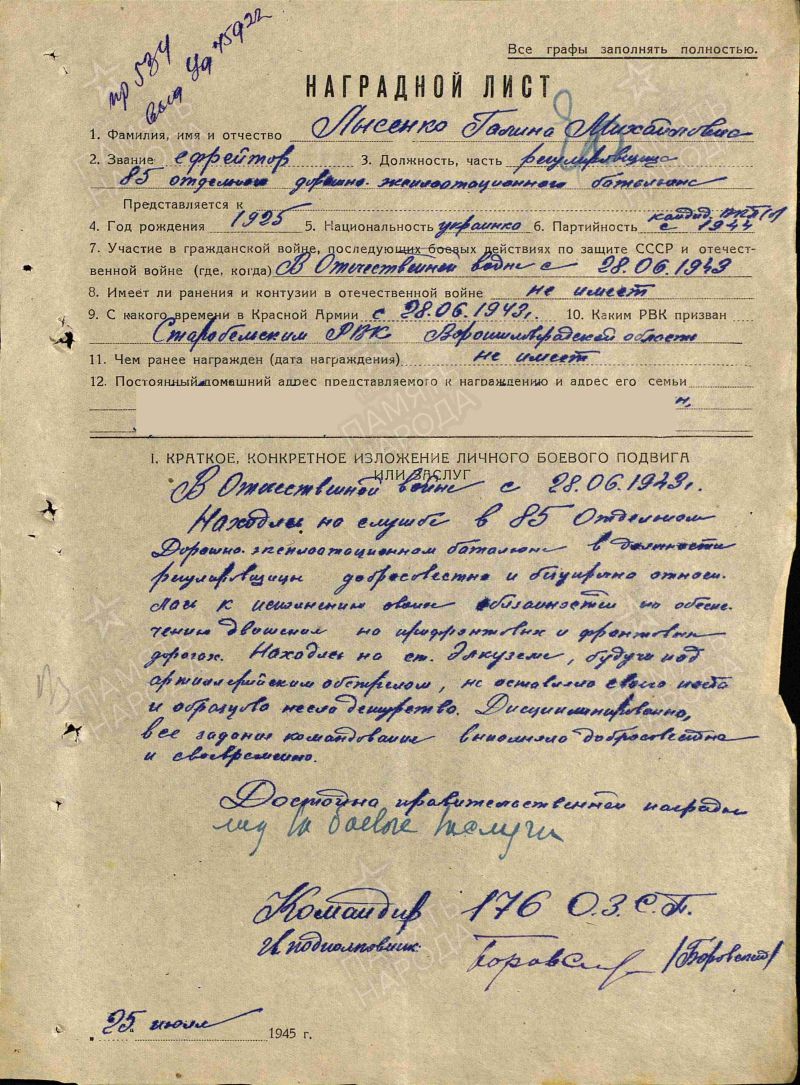 пр 534
Все графы заполнять полностью.
НАГРАДНОЙ ЛИСТ
1. Фамилия, имя и отчество Лысенко Галина Михайловна
2. Звание ефрейтор 3. Должность, часть регулировщица
85 отдельного дорожно-эксплоатационного батальона
Представляется к
4. Год рождения 1925 5. Национальность украинка 6. Партийность кандид. ВКП(б)
с 1944
7. Участие в гражданской войне, последующих боевых действиях по защите СССР и отечест-
венной войне (где, когда) В Отечественной войне с 28.06.1943
8. Имеет ли ранения и контузии в отечественной войне не имеет
9. С какого времени в Красной Армии с 28.06.1943г. 10. Каким РВК призван
Старобельским РВК Ворошиловградской области
11. Чем ранее награжден (дата награждения) не имеет
12. Постоянный домашний адрес представляемого к награждению и адрес его семьи
I. КРАТКОЕ, КОНКРЕТНОЕ ИЗЛОЖЕНИЕ ЛИЧНОГО БОЕВОГО ПОДВИГА
ИЛИ ЗАСЛУГ
В Отечественной войне с 28.06.1943г.
Находясь на службе в 85 Отдельном
Дорожно-эксплоатационном батальоне в должности
регулировщицы добросовестно и относи-
лась к исполнению своих обязанностей по обеспе-
чению движения на прифронтовых и фронтовых
дорогах. Находясь на ст. Элкуземе, будучи под
артиллерийским обстрелом, не оставляла своего поста
и образцово несла дежурство. Дисциплинированна,
все задания командования выполняла добросовестно
и своевременно.
Достойна правительственной награды
мед За боевые заслуги
Командир 176 О.З.С.П.
Гв. подполковник: Боровск /Боровский/
25 июля 1945 г.
ПАМЯТЬ НАРОДА